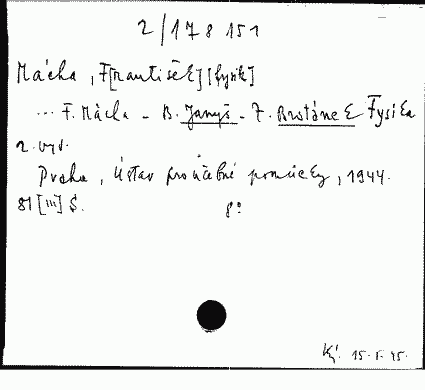 2/178 151
Mácha, F[rantišek] [fysik]
... F. Mácha - B. Janyš - F. Brotánek Fysika
2. vyd.
Praha, Ústav pro učebné pomůcky, 1944.
81 [III] S. 8°
Ký. 15.5.45.